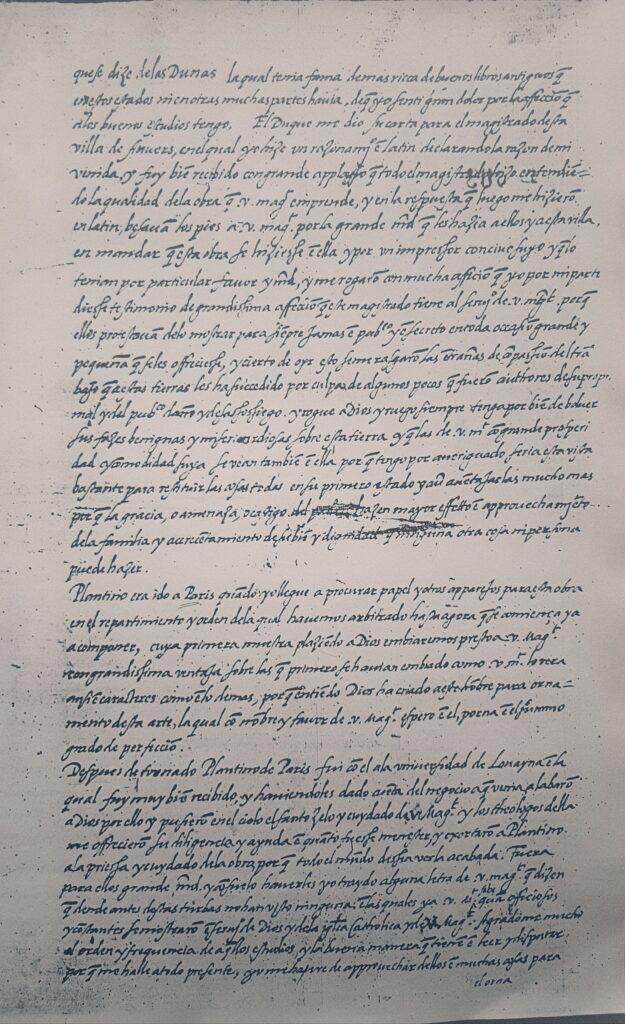 que se dize de las Dunas la qual tenia fama de mas ricca de buenos libros antiguos q̃
en estos estados ni en otras muchas partes havia, de q̃ yo senti grãn dolor por la affecciõ q̃
a los buenos estudios tengo. El Duque me dio su carta para el magistrado desta
villa de Anvers, en el qual yo hize un razonamiẽ.to ẽ latin declarando la razon de mi
venida, y fuy biẽ recibido con grande applauso q̃ todo el magistrado hizo entendiẽ=
do la qualidad de la obra q̃ .v. mag. emprende, y en la respuesta q̃ luego me hizierõ
en latin, besavan los pies a .v. mag. por la grande md q̃ les hazia a ellos y a esta villa,
en mandar q̃ esta obra se hiziesse ẽ ella y por un impressor concive suyo y q̃ lo
tenian por particular favor y md, y me rogarõ con mucha afficiõ q̃ yo por mi parte
diesse testimonio de grandissima affecciõ q̃ este magistrado tiene al servo de .v. mt porq̃
ellos protestavan de lo mostrar para siẽpre jamas ẽ pubco y ẽ secreto en toda occasiõ grande y
pequeña q̃ se les offreciesse, y cierto de oyr esto se me rasgarõ las entrañas de cõpassiõ del tra
bajo q̃ a estas tierras les ha succedido por culpa de algunos pocos q̃ fuerõ auctores de su propr.
mal y del pubco daño y desasossiego. y rogue a Dios y ruego siempre tenga por biẽ de bolver
sus fazes benignas y misericordiosas sobre esta tierra y q̃ las de .v. mt cõ grande prosperi
dad y comodidad suya se vean tambiẽ ẽ ella, por q̃ tengo por averiguado, seria esta vista
bastante para restituir las cosas todas en su primero estado y aũ avẽtajarlas mucho mas
por q̃ la gracia, o amenaza, o castigo del hazen mayor effetto ẽ approvechamiẽto
de la familia y accrecentamiento de su biẽ y dignidad q̃ ninguna otra cosa ni persona
puede hazer.
Plantino era ido a Paris quãdo yo llegue a procurar papel y otros apparejos para esta obra
en el repartimiento y orden de la qual havemos arbitrado hasta agora q̃ se comiença ya
a componer, cuya primera muestra plaziẽdo a Dios embiaremos presto a .v. Mag.t
con grandissima ventaja sobre las q̃ primero se havian embiado como .v. mt lo vera
ansi ẽ caracteres como ẽ lo demas, por q̃ entiẽdo Dios ha criado a este hõbre para orna=
mento desta arte, la qual cõ nõbre y favor de .v. Mag.t espero ẽ el, porna ẽ el summo
grado de perficciõ.
Despues de tornado Plantino de Paris fui cõ el a la universidad de Lovayna ẽ la
qual fuy muy biẽ recibido, y haviendoles dado cuẽta del negocio a q̃ venia alabarõ
a Dios por ello y pusierõ en el cielo el santo zelo y cuydado de .v. Mag.t y los theologos della
me offrecierõ su diligencia y ayuda ẽ quãto fuesse menester, y exortarõ a Plantino
a la priessa y cuydado de la obra por q̃ todo el mũdo dessea verla acabada. Fuera
para ellos grande md. y cõsuelo haverles yo traydo alguna letra de .v. mag.t q̃ dizen
q̃ dende antes destas turbas no han visto ninguna ẽ las quales ya .v. mt sabe quã officiosos
y cõstantes se mostrarõ ẽ servo de Dios y de la yglia catholica y de .v. Mag.t Agradome mucho
el orden y frequencia de aq̃llos estudios, y la buena manera q̃ tienẽ ẽ leer y disputar
por q̃ me halle a todo presente, y yo me hapre de approvechar dellos ẽ muchas cosas para
el orna